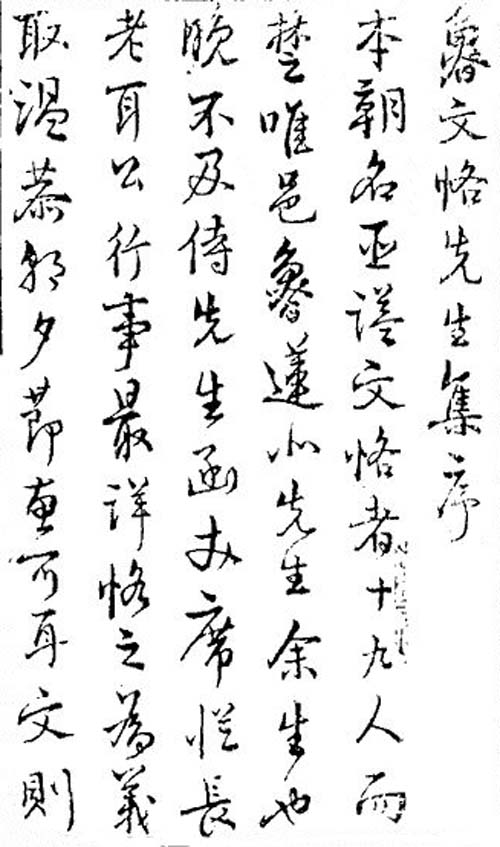 魯文恪先生集序
本朝名臣諡文恪者十九人而
楚唯邑魯蓮北先生余生也
晚不及侍先生函丈席從長
老耳公行事最詳恪之為義
取溫恭朝夕節惠可耳文則